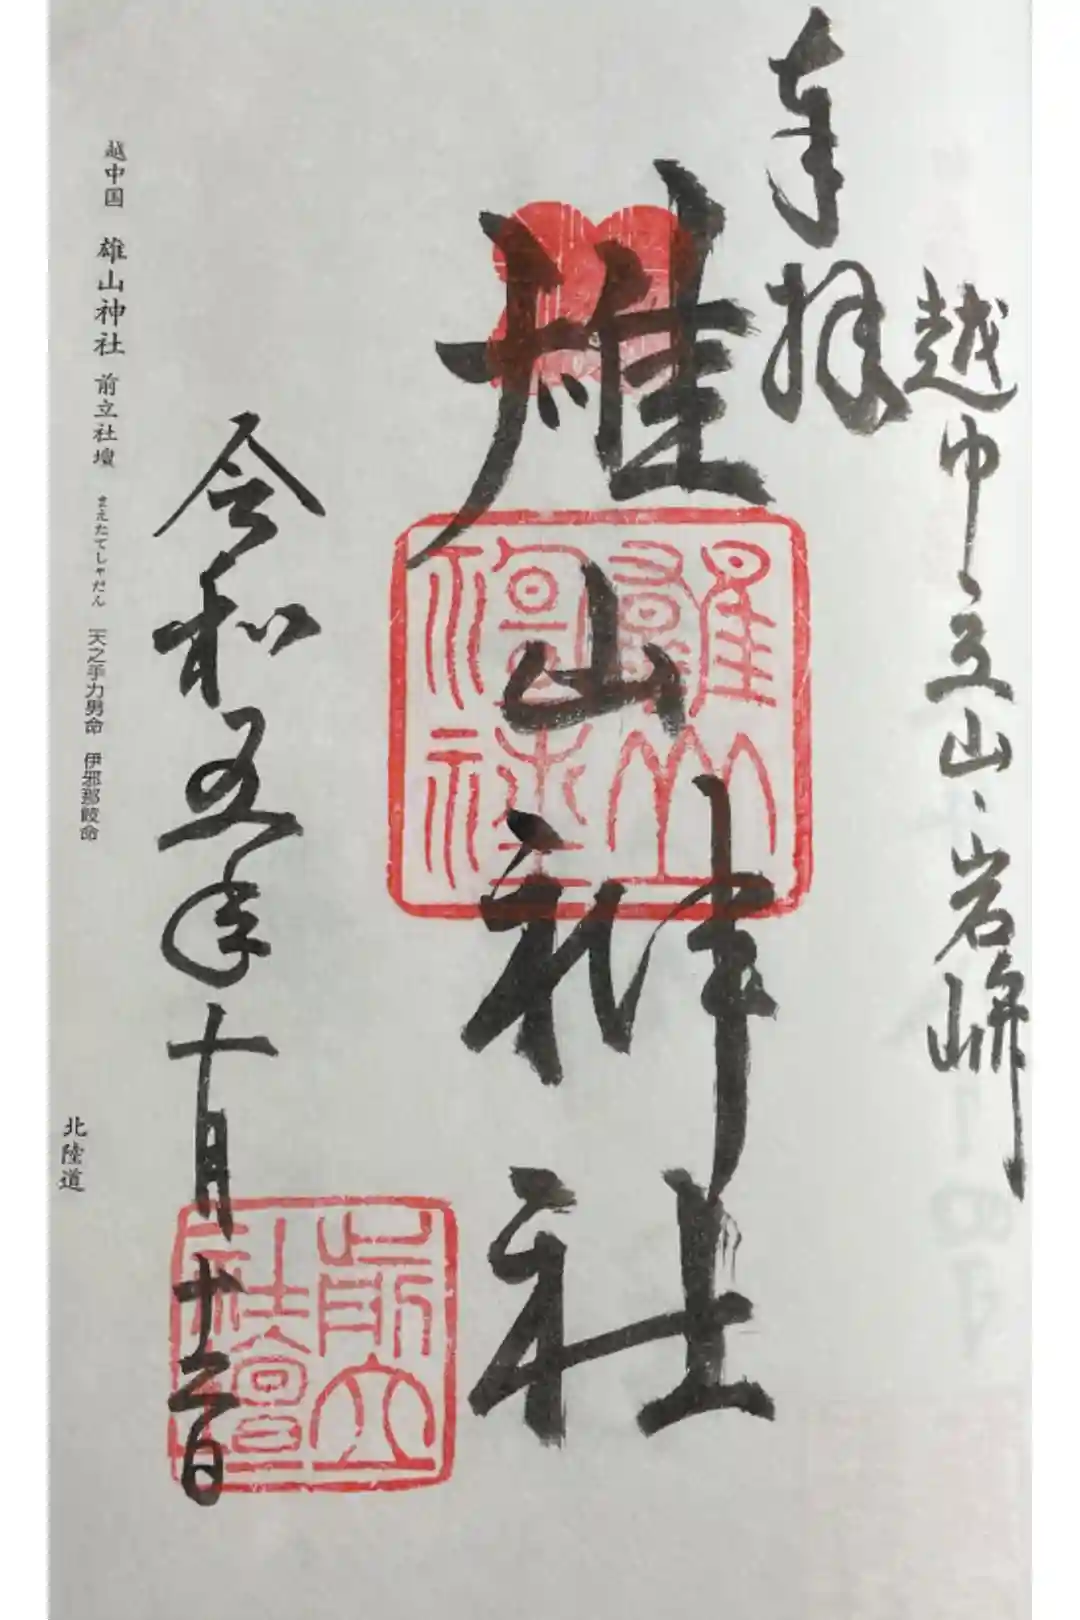 越中立山岩峅
奉拝
雄山神社
雄山神社
前立社壇
令和五年十月十二日
越中国 雄山神社 前立社壇 まえたてしゃだん 天之手力男命 伊邪那岐命
北陸道